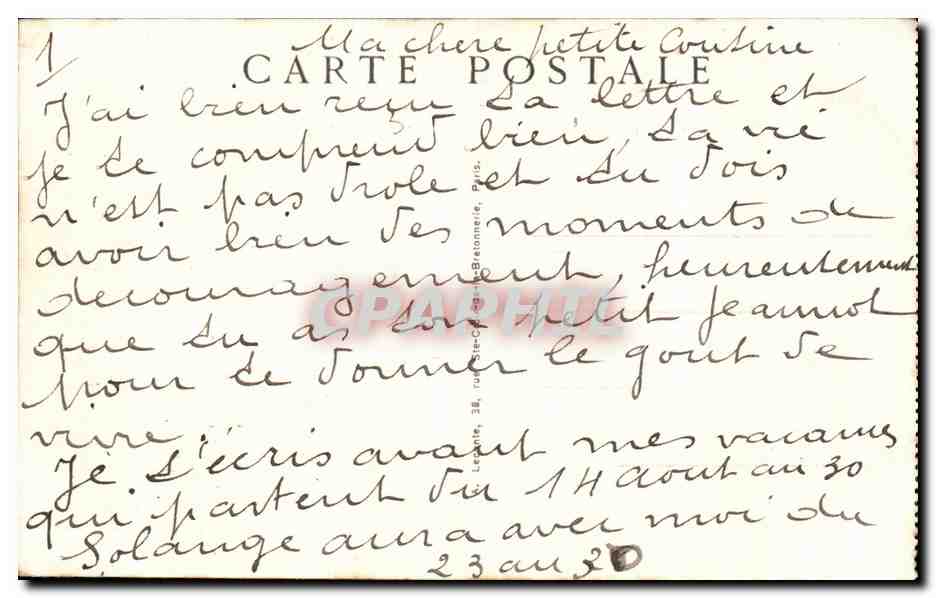 1/
Ma chere petite Cousine
CARTE POSTALE
J'ai bien reçu ta lettre et
je te comprend bien, ta vie
n'est pas drole et tu dois
avoir bien des moments de
decouragement, heureusement
que tu as ton petit Jeannot
pour te donner le gout de
vivre.
Je t'ecris avant mes vacances
qui partent du 14 Aout au 30
Solange aura avec moi du
23 au 30
Leconte, 38, rue Ste-Croix-de-la-Bretonnerie, Paris.
CPAPHIL